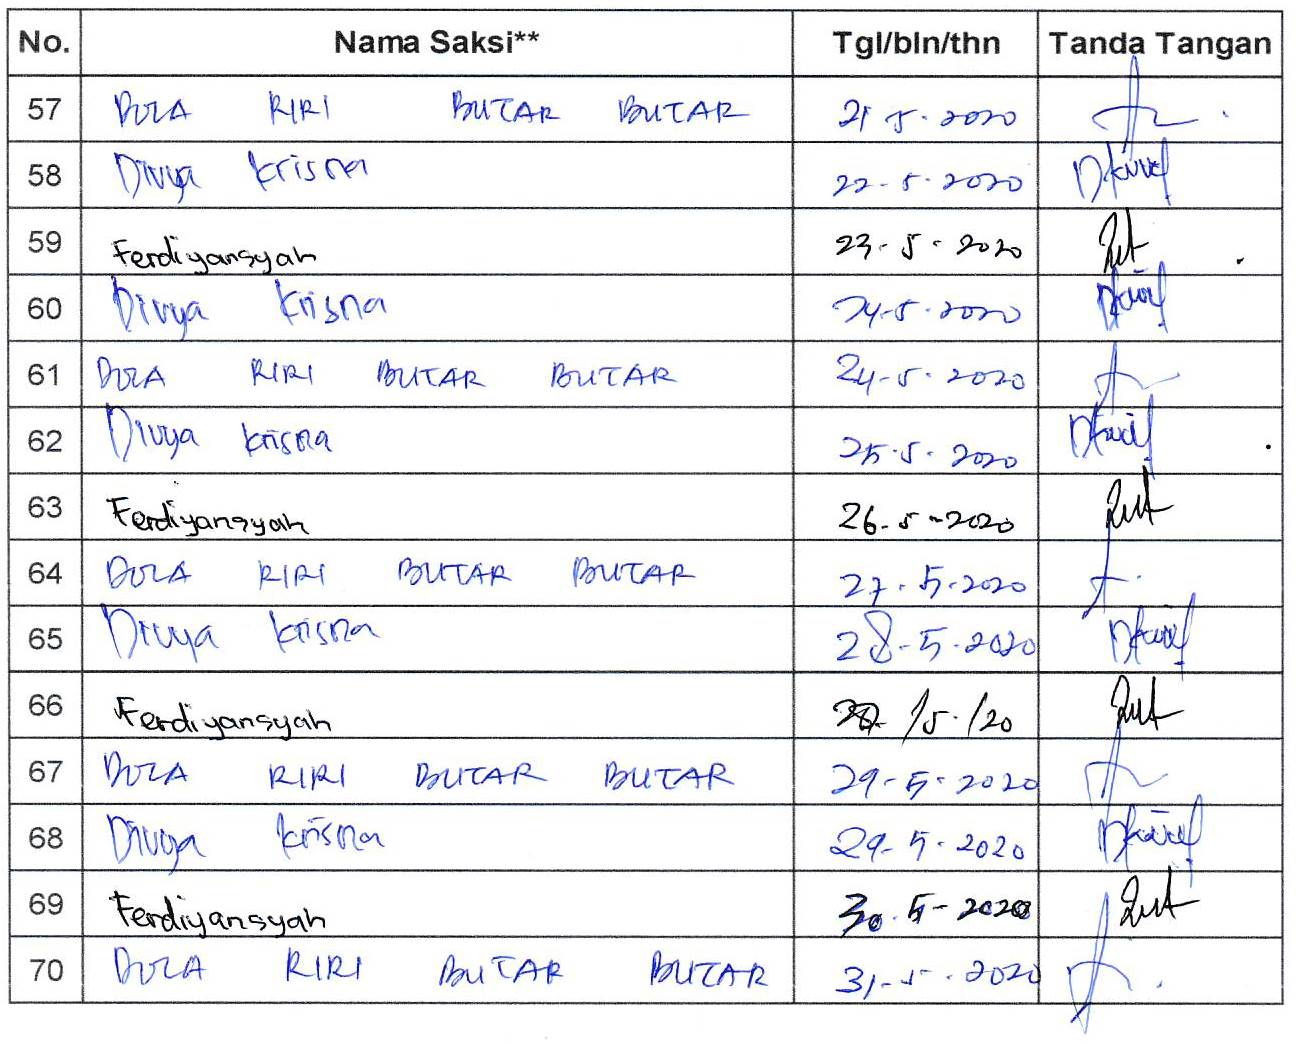 No. Nama Saksi** Tgl/bln/thn Tanda Tangan
57 DOLA RIRI BUTAR BUTAR 21-5-2020
58 Divya Krisna 22-5-2020
59 Ferdiyansyah 23-5-2020
60 Divya Krisna 24-5-2020
61 DOLA RIRI BUTAR BUTAR 24-5-2020
62 Divya Krisna 25-5-2020
63 Ferdiyansyah 26-5-2020
64 DOLA RIRI BUTAR BUTAR 27-5-2020
65 Divya Krisna 28-5-2020
66 Ferdiyansyah /5/20
67 DOLA RIRI BUTAR BUTAR 29-5-2020
68 Divya Krisna 29-5-2020
69 Ferdiyansyah 30-5-2020
70 DOLA RIRI BUTAR BUTAR 31-5-2020